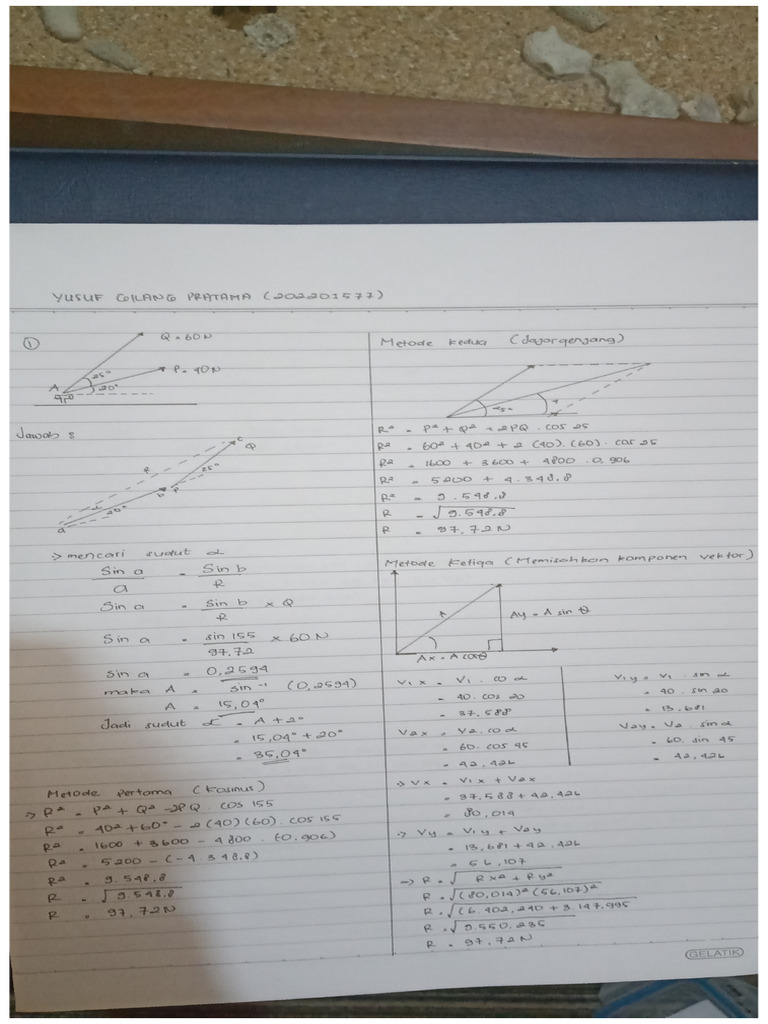 YUSUF GILANG PRATAMA (202201577)
①
Q = 60N
P = 40N
A
25°
20°
Jawab :
c
Q
R
25°
b P
α
20°
a
→ mencari sudut α
Sin a / a = Sin b / R
Sin a = Sin b / R × Q
Sin a = sin 155 / 97.72 × 60N
sin a = 0,2594
maka A = sin⁻¹ (0,2594)
A = 15,04°
Jadi sudut α = A + 2°
= 15,04° + 20°
= 35,04°
Metode Pertama (Kosinus)
→ R² = P² + Q² - 2PQ . cos 155
R² = 40² + 60² - 2(40)(60). cos 155
R² = 1600 + 3600 - 4800 . (-0.906)
R² = 5200 - (-4.348.8)
R² = 9.548.8
R = √9.548.8
R = 97,72N
Metode kedua (Jajargenjang)
25°
R² = P² + Q² + 2PQ . cos 25
R² = 60² + 40² + 2 (40).(60). cos 25
R² = 1600 + 3600 + 4800 . 0,906
R² = 5200 + 4.348.8
R² = 9.548.8
R = √9.548.8
R = 97,72N
Metode Ketiga (Memisahkan komponen vektor)
A
Ay = A sin θ
Ax = A cosθ
V₁x = V₁ . co α
= 40. cos 20
= 37,588
V₂x = V₂. co α
= 60. cos 45
= 42,426
V₁y = V₁ . sin α
= 40. sin 20
= 13,681
V₂y = V₂ . sin α
= 60. sin 45
= 42,426
→ Vx = V₁x + V₂x
= 37,588 + 42,426
= 80,014
→ Vy = V₁y + V₂y
= 13,681 + 42,426
= 56,107
→ R = √Rx² + Ry²
R = √(80,014)² (56,107)²
R = √(6.402,240 + 3.147,995
R = √9.550.235
R = 97,72N
GELATIK